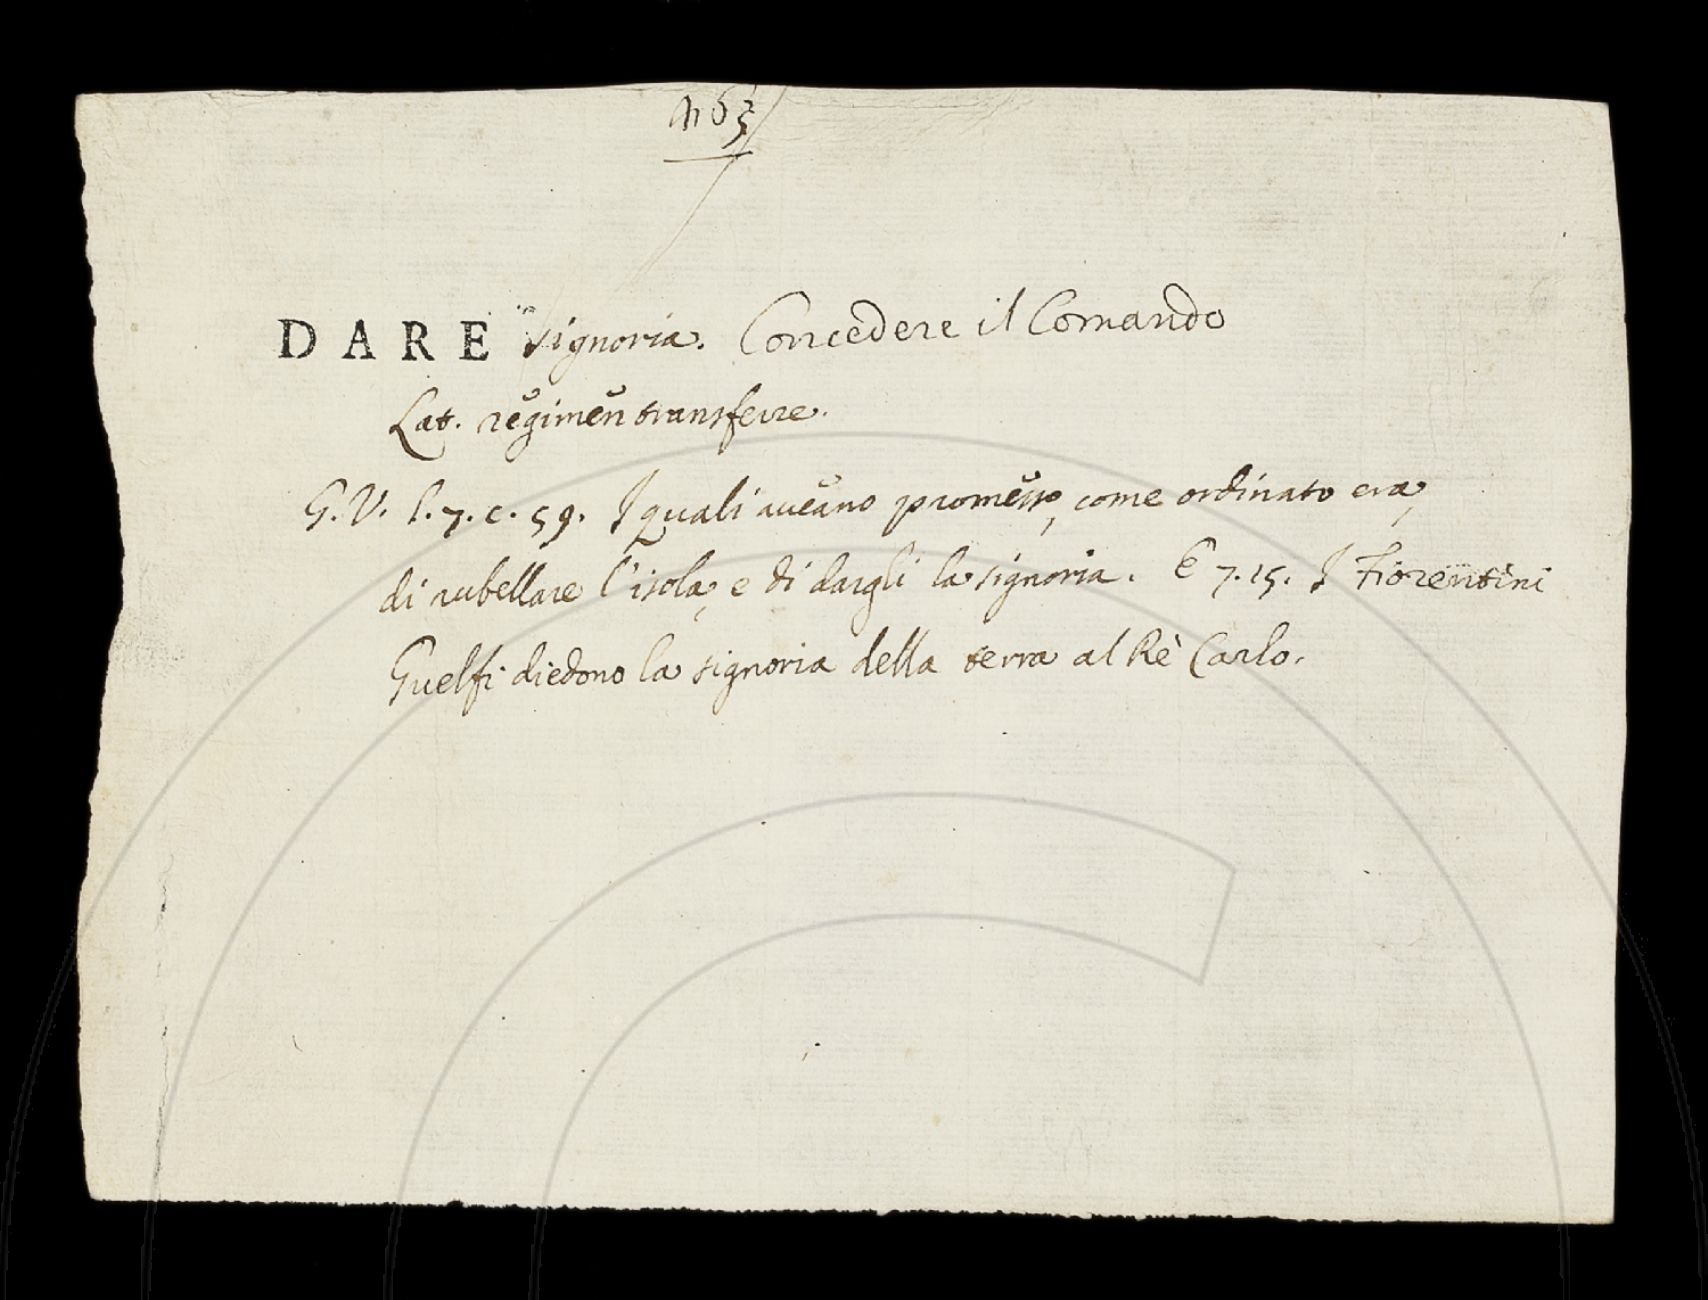 DARE signoria. Concedere il Comando
Lat. regimen transferre.
G. V. l. 7. c. 59. I quali aueano promesso, come ordinato era,
di rubellare l'isola, e di dargli la signoria. E 7. 15. I Fiorentini
Guelfi diedono la signoria della terra al Rè Carlo.